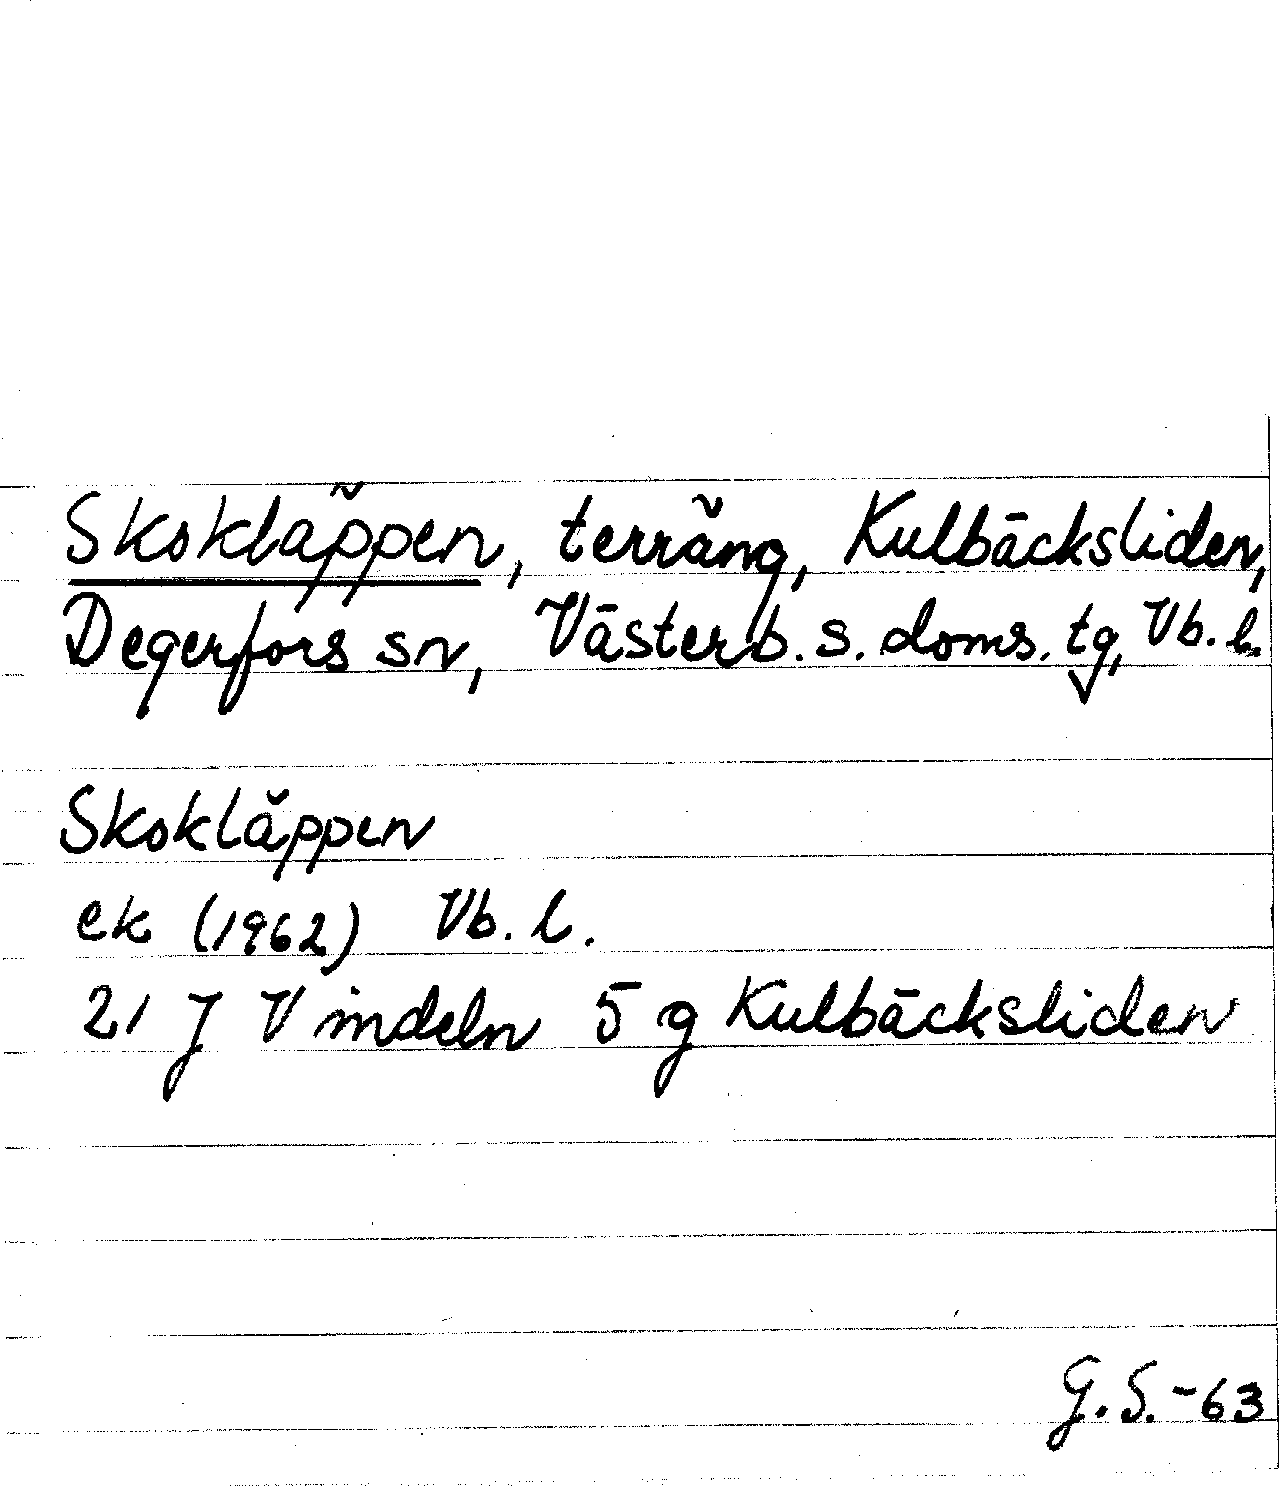 Skokläppen, terräng, Kulbäcksliden,
Degerfors sn, Västerb. s. doms. tg, Vb. l.
Skokläppen
ek (1962) Vb. l.
21 J Vindeln 5 g Kulbäcksliden
G. S. -63